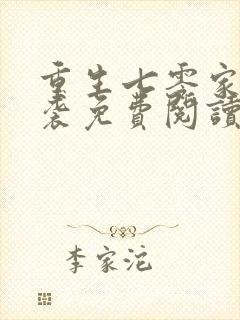 重生七零家
袭免費閱讀
李家沱